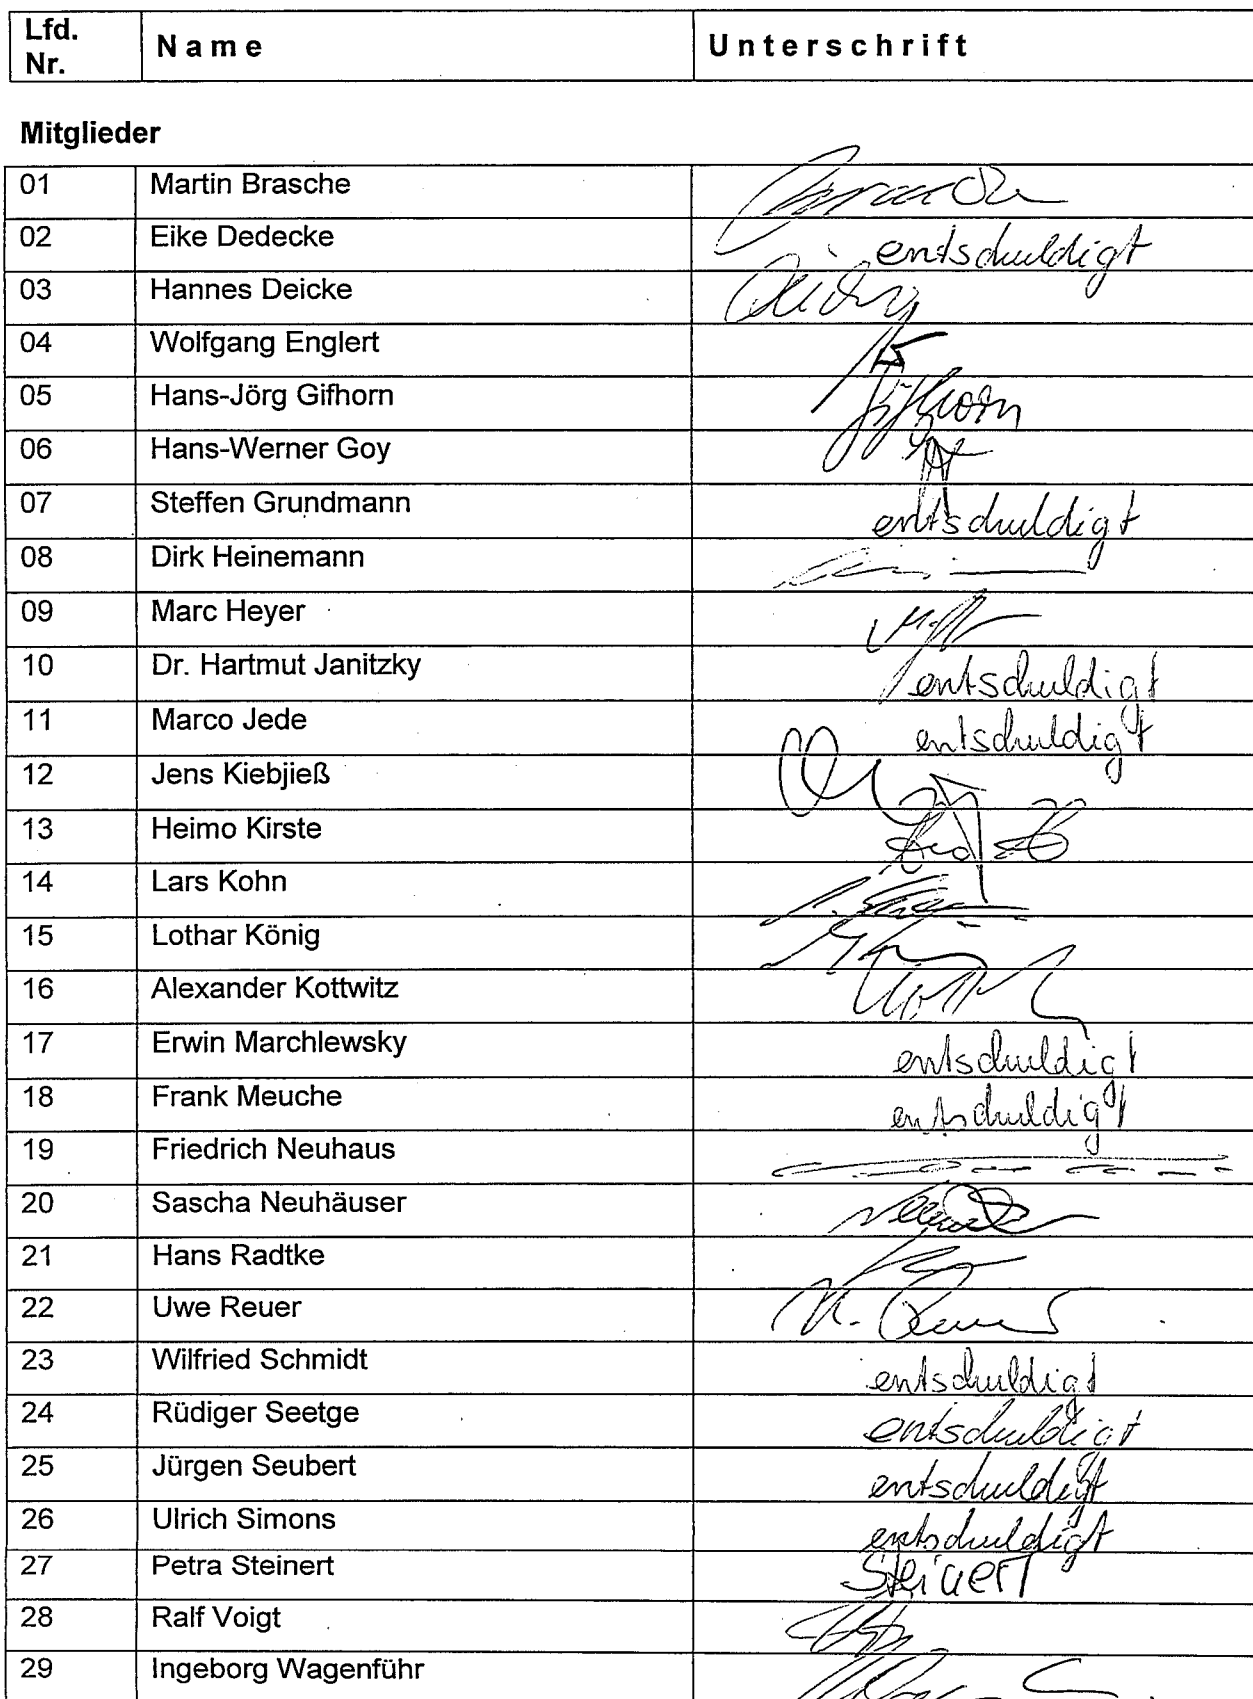 Lfd. Nr. Name Unterschrift
Mitglieder
01 Martin Brasche
02 Eike Dedecke entschuldigt
03 Hannes Deicke
04 Wolfgang Englert
05 Hans-Jörg Gifhorn Gifhorn
06 Hans-Werner Goy
07 Steffen Grundmann entschuldigt
08 Dirk Heinemann
09 Marc Heyer
10 Dr. Hartmut Janitzky entschuldigt
11 Marco Jede entschuldigt
12 Jens Kiebjieß
13 Heimo Kirste
14 Lars Kohn
15 Lothar König
16 Alexander Kottwitz
17 Erwin Marchlewsky entschuldigt
18 Frank Meuche entschuldigt
19 Friedrich Neuhaus
20 Sascha Neuhäuser
21 Hans Radtke
22 Uwe Reuer
23 Wilfried Schmidt entschuldigt
24 Rüdiger Seetge entschuldigt
25 Jürgen Seubert entschuldigt
26 Ulrich Simons entschuldigt
27 Petra Steinert Steinert
28 Ralf Voigt
29 Ingeborg Wagenführ